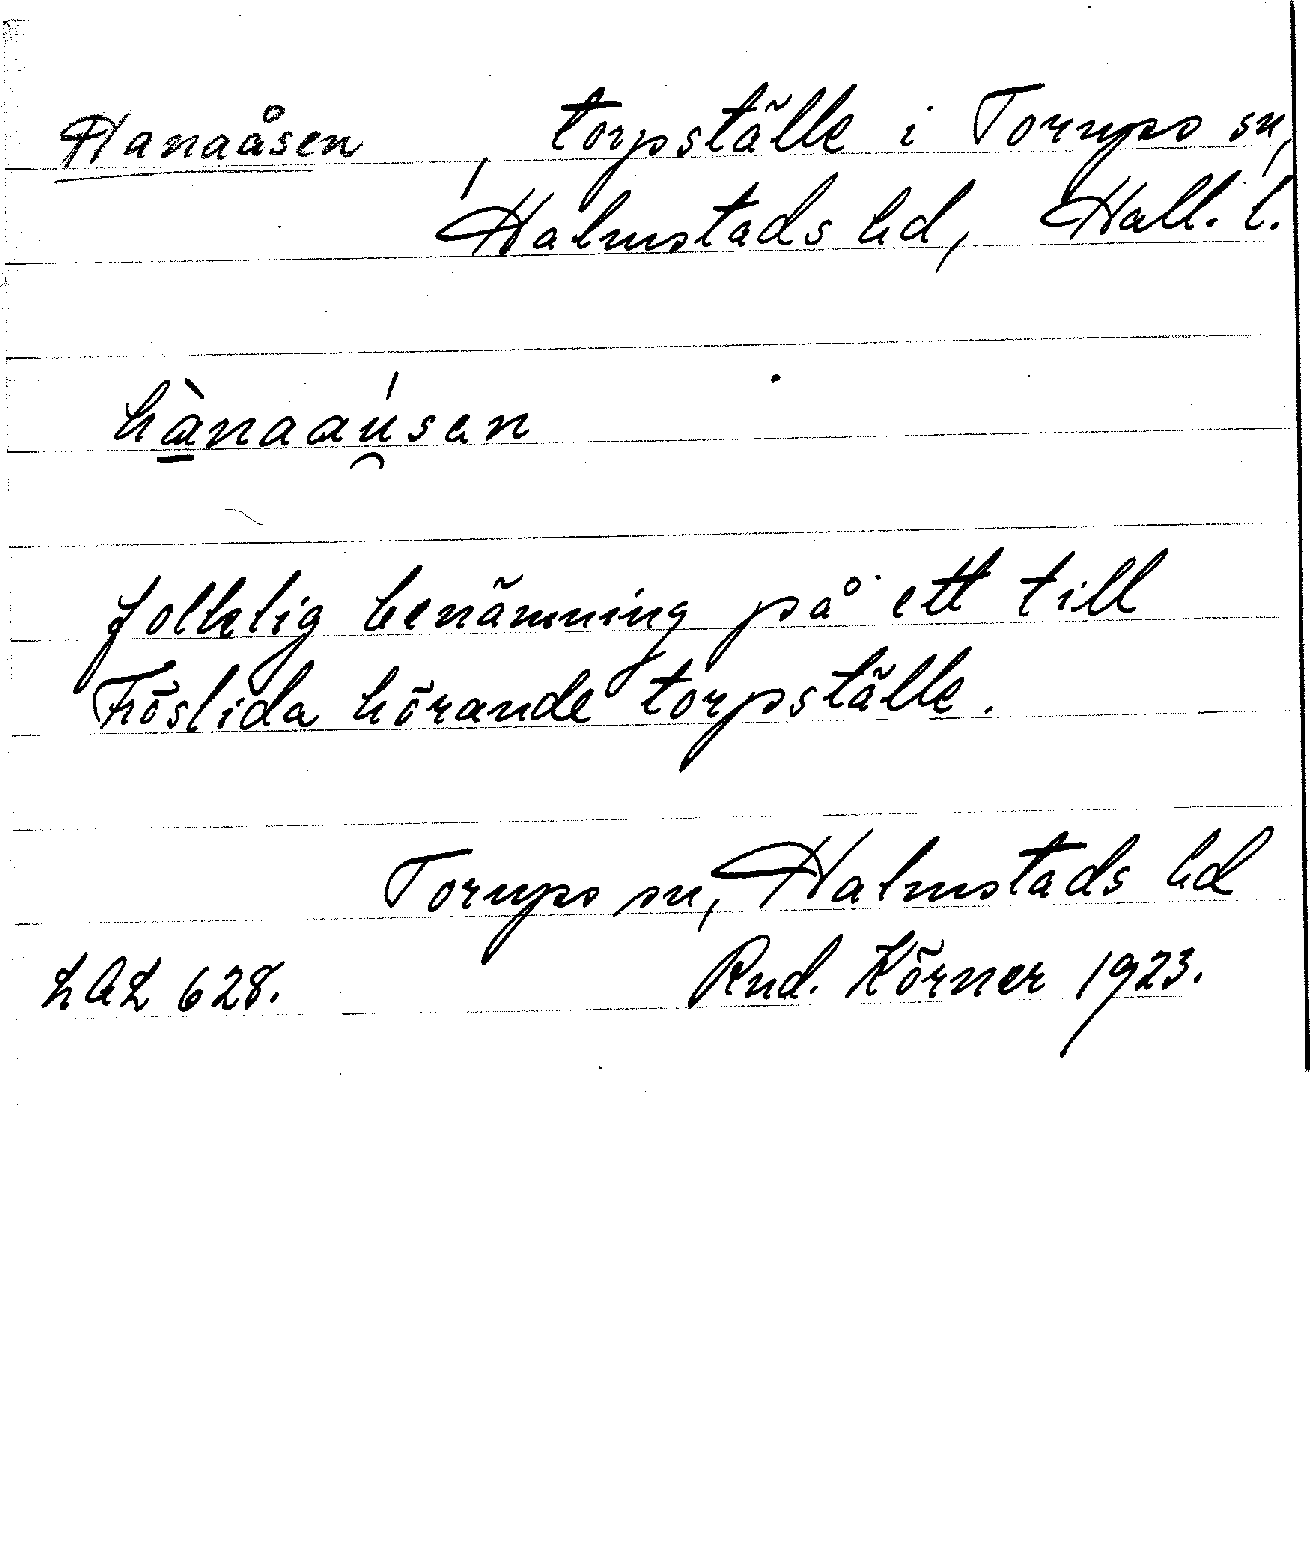 Hanaåsen, torpställe i Torups sn,
Halmstads hd, Hall. l.
hànaau̯sen
folklig benämning på ett till
Fröslida hörande torpställe.
Torups sn, Halmstads hd
LAL 628. Rnd. Körner 1923.